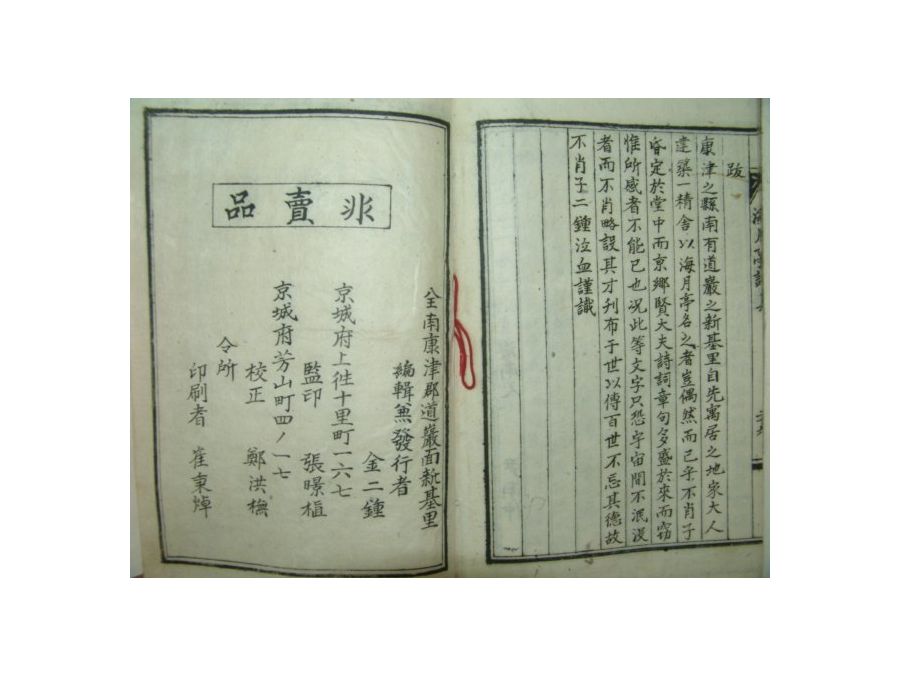 跋
康津之縣南有道巖之新基里自先寓居之地家大人
建築一精舍以海月亭名之者豈偶然而已乎不肖子
昏定於堂中而京鄉賢大夫詩詞章句多盛於來而窃
惟所感者不能已也况此等文字只恐宇宙間不泯没
者而不肖略設其才刊布于世以傳百世不忘其德故
不肖子二鍾泣血謹識
非賣品
全南康津郡道巖面新基里
編輯兼發行者
金二鍾
京城府上徃十里町一六七
監印 張暻植
京城府芳山町四ノ一七
校正 鄭洪橅
仝所
印刷者 崔秉焯